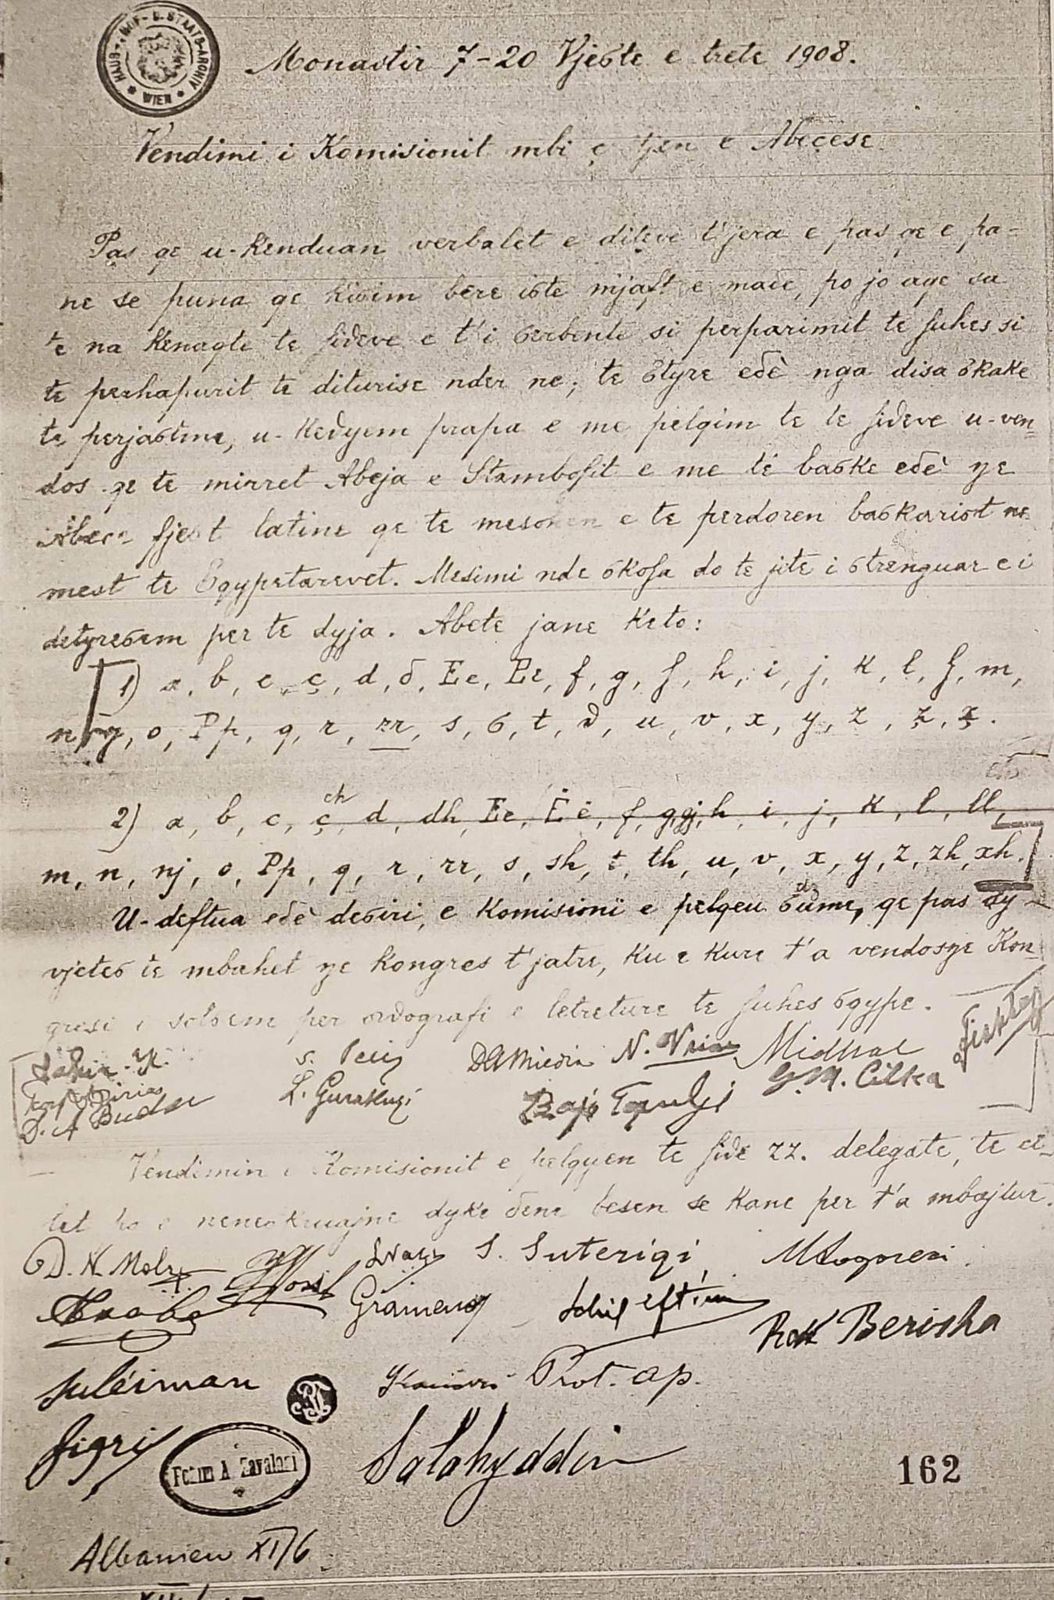 HAUS-, HOF- U. STAATS-ARCHIV WIEN
Monastir 7-20 Vjeϭte e trete 1908.
Vendimi i Komisionit mbi ç tjen e Abeçese
Pas qe u-kenduan verbalet e diteve t'jera e pas qe e pa-
ne se puna qe kiϭim bere iϭte mjaft e maδe, po jo aqe sa
te na kenaqte te ʃiδeve e t'i ϭerbente si perparimit te ʃuhes si
te perhapurit te diturise nder ne; te ϭtyre eδè nga disa ϭkake
te perjaϭtme, u-keδyem prapa e me pelqim te te ʃiδeve u-ven-
dos qe te mirret Abeja e Stamboʃit e me të baϭke eδè ɲe
Abece fjeϭt latine qe te mesohen e te perdoren baϭkariϭt ne
mest te ϭqypetarevet. Mesimi nde ϭkoʃa do te jite i ϭtrenguar e i
detyreϭem per te dyja. Abete jane keto:
1) a, b, c, ç, d, δ, Ee, Ɛɛ, f, g, ƍ, h, i, j, k, l, ʃ, m,
n, ɲ, o, Pp, q, r, rr, s, ϭ, t, ϑ, u, v, x, y, z, z̧, x̧.
2) a, b, c, ç, d, dh, Ee, Ëë, f, g, gj, h, i, j, k, l, ll,
ch
m, n, nj, o, Pp, q, r, rr, s, sh, t, th, u, v, x, y, z, zh, xh.
U-deftua eδè deϭiri, e komisioni e pelqeu ϭume, qe pas dy
vjeteϭ te mbahet ɲe kongres t'jatre, ku e kure t'a vendosɲe Kon-
gresi i solϭem per orϑografi e letreture te ʃuhes ϭqype.
S. Peci
N. Naço
Midhat
Fishta
D. A. Budai
L. Gurakuqi
Bajo Topulli
G. M. Cilka
Vendimin e Komisionit e pelqyen te ʃiδe 22. delegate, te ci-
let ho e neneϭkruajne dyke δene besen se kane per t'a mbajtur.
D. N. Mole
S. Shuteriqi
M. Logoreci
Grameno
Rok Berisha
Suleiman
Prot. ap.
Fiqri
Fehim A. Zavalani
Salahyddin
162
Albanien XI/6